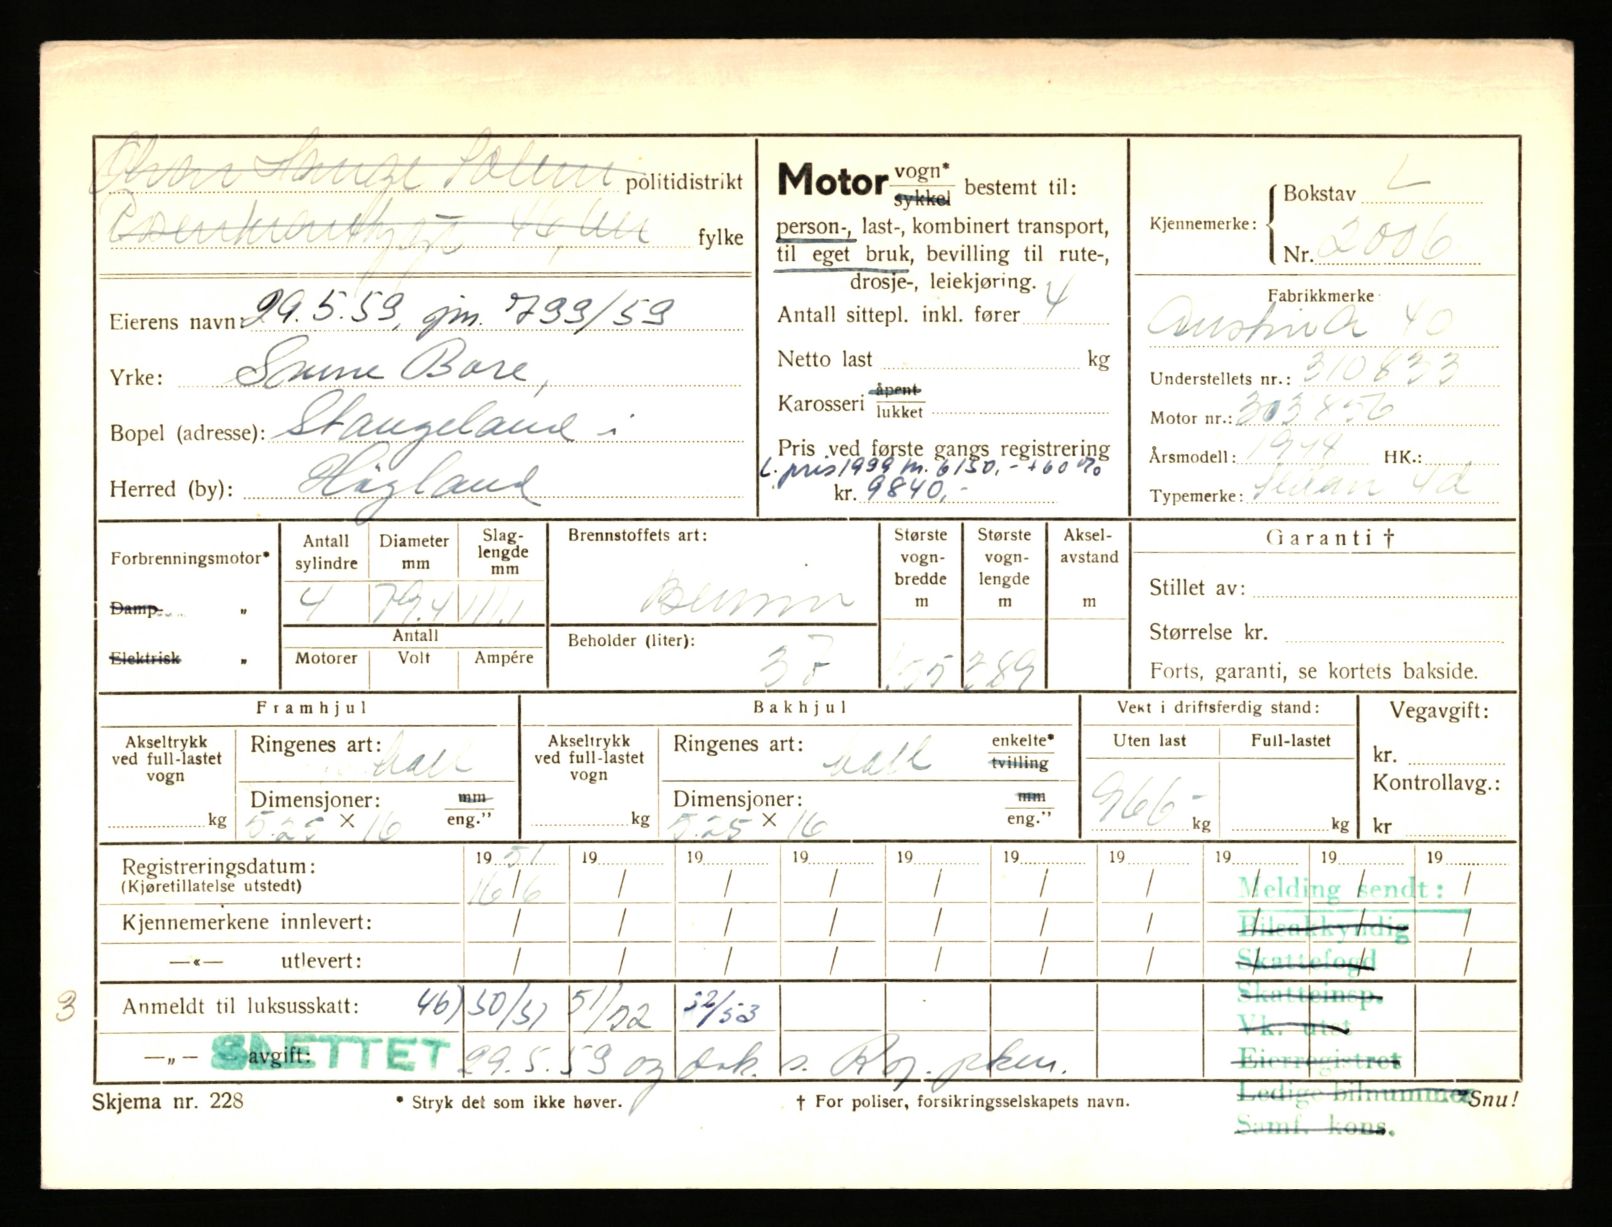 politidistrikt
fylke
Eierens navn: 29.5.59, jm. 799/59
Yrke: Sunne Bore,
Bopel (adresse): Stangeland i
Herred (by): Høyland
Motor vogn*
sykkel bestemt til:
person-, last-, kombinert transport,
til eget bruk, bevilling til rute-,
drosje-, leiekjøring.
Antall sittepl. inkl. fører 4
Netto last kg
Karosseri åpent
lukket
Pris ved første gangs registrering
L. pris 1939 m. 6150,- + 60 %
kr. 9840,-
Kjennemerke: Bokstav L
Nr. 2006
Fabrikkmerke
Austin A 40
Understellets nr.: 310833
Motor nr.: 303456
Årsmodell: HK.:
Typemerke: 4d
Forbrenningsmotor*
Damp „
Elektrisk „
Antall sylindre 4
Diameter mm 79.4
Slaglengde mm 111.1
Antall
Motorer Volt Ampére
Brennstoffets art:
Bensin
Beholder (liter): 38
Største vognbredde m 155
Største vognlengde m 389
Akselavstand m
Garanti †
Stillet av:
Størrelse kr.
Forts, garanti, se kortets bakside.
Framhjul
Akseltrykk ved full-lastet vogn kg
Ringenes art:
Dimensjoner: mm
5.25 × 16 eng.”
Bakhjul
Akseltrykk ved full-lastet vogn kg
Ringenes art: enkelte*
tvilling
Dimensjoner: mm
5.25 × 16 eng.”
Vekt i driftsferdig stand:
Uten last Full-lastet
966 kg kg
Vegavgift:
kr.
Kontrollavg.:
kr
Registreringsdatum: 19 51 19 19 19 19 19 19 19 19 19
(Kjøretillatelse utstedt) 16/6 / / / / / / / / /
Kjennemerkene innlevert: / / / / / / / / / /
—«— utlevert: / / / / / / / / / /
Melding sendt:
Bilsakkyndig
Skattefogd
Skatteinsp.
Vk. utst
Eierregistret
Ledige bilnummer
Samf. kons.
3 Anmeldt til luksusskatt: 46) 50/51 51/52 52/53
—„— avgift: SLETTET 29.5.59 og
Skjema nr. 228 * Stryk det som ikke høver. † For poliser, forsikringsselskapets navn. Snu!